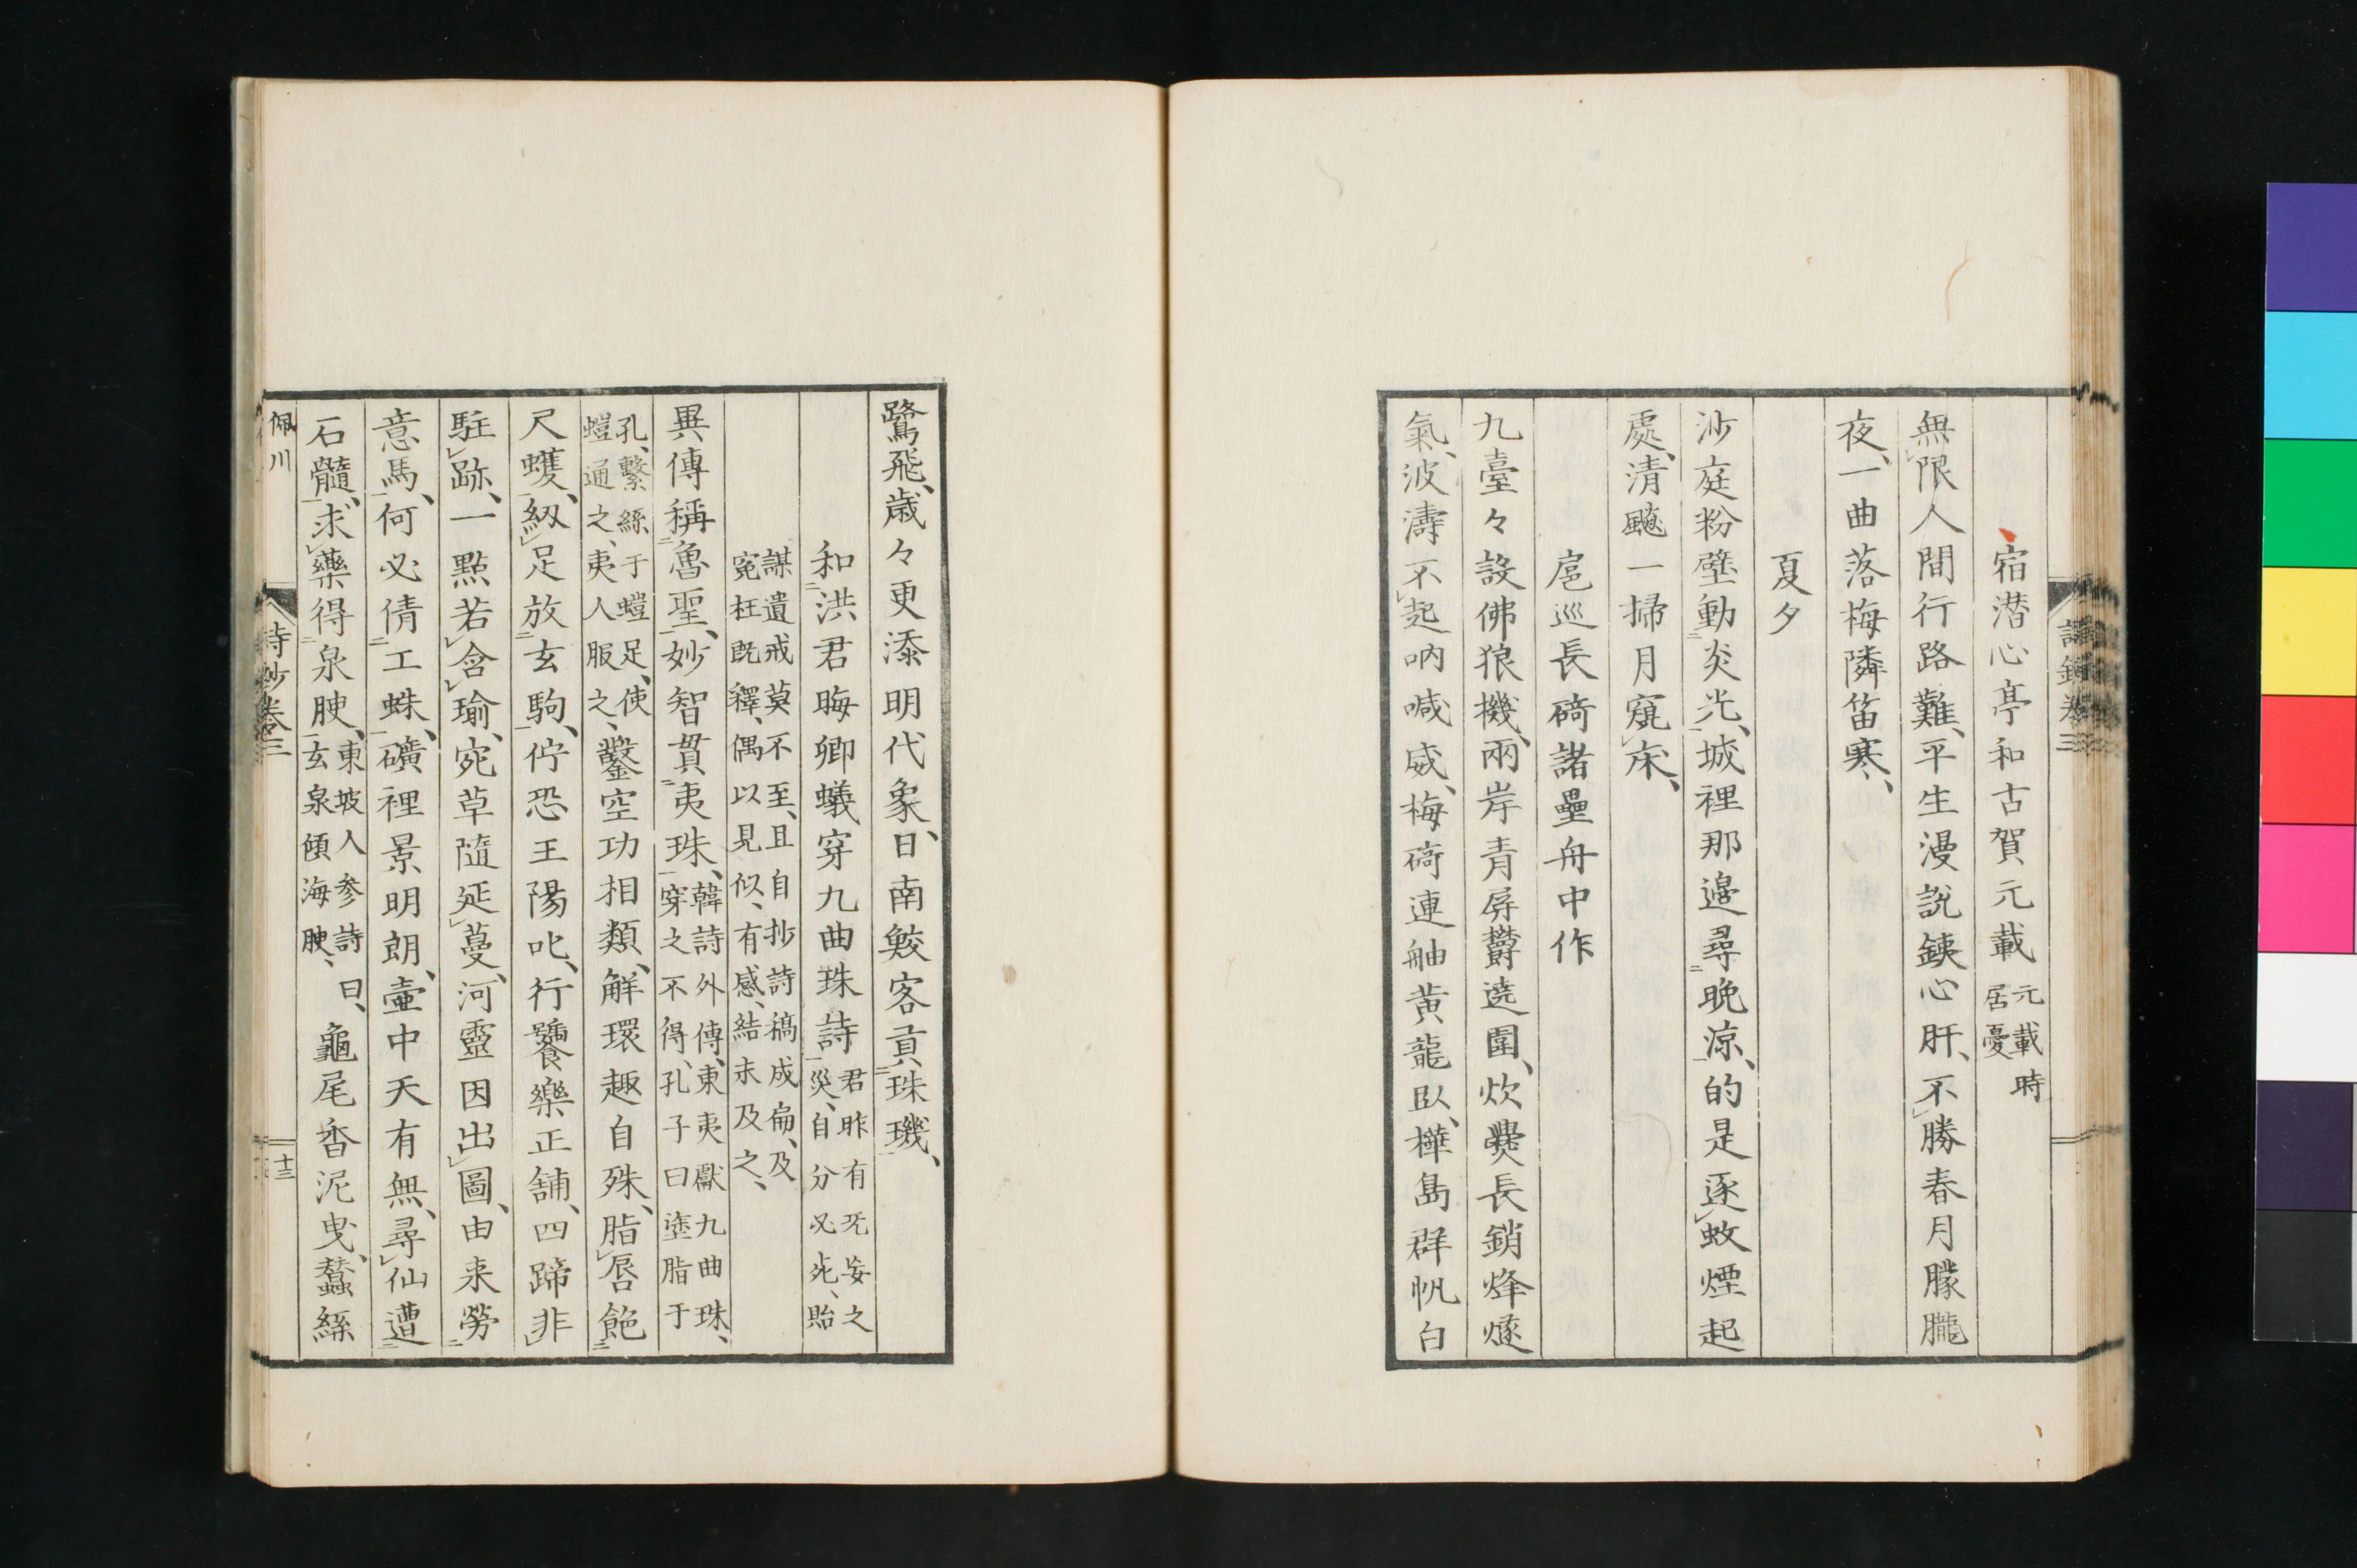 宿潛心亭和古賀元載元載時居憂
無限人間行路難、平生漫說鐵心肝、不勝春月朦朧
夜、一曲落梅隣笛寒、
夏夕
沙庭粉壁動炎光、城裡那邊尋晚涼、的是逐蚊煙起
處、清颸一掃月窺床、
扈巡長碕諸壘舟中作
九臺々設佛狼機、兩岸青屏欝遶圍、炊爨長銷烽燧
氣、波濤不起吶喊威、梅碕連舳黄龍臥、樺島群帆白
鷺飛、歳々更添明代象、日南鮫客貢珠璣、
和洪君晦卿蟻穿九曲珠詩君昨有旡妄之災、自分必死、貽
謀遺戒莫不至、且自抄詩稿成扁、及寃枉既釋、偶以見似、有感、結末及之、
異傳稱魯聖、妙智貫夷珠、韓詩外傳、東夷獻九曲珠、穿之不得、孔子曰塗脂于
孔、繫絲于螘足、使螘通之、夷人服之、鑿空功相類、解環趣自殊、脂唇飽
尺蠖、紉足放玄駒、佇恐王陽叱、行饔樂正舖、四蹄非
駐跡、一點若含瑜、宛草隨延蔓、河靈因出圖、由来勞
意馬、何必倩工蛛、礦裡景明朗、壷中天有無、尋仙遭
石髓、求藥得泉腴、東坡人参詩曰、玄泉傾海腴、龜尾香泥曳、蠶絲
佩川
詩鈔卷三
十三